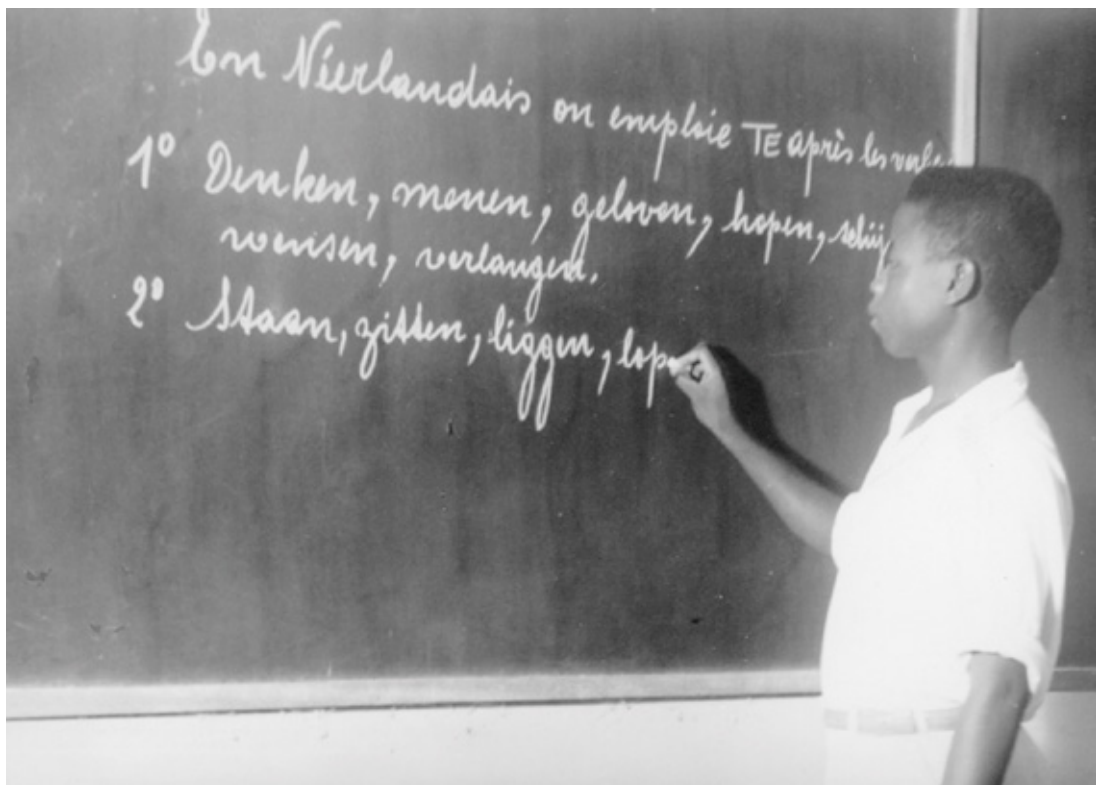 En Néerlandais on emploie TE après les verbe
1° Denken, menen, geloven, hopen, schij
wensen, verlangen.
2° Staan, zitten, liggen, lope